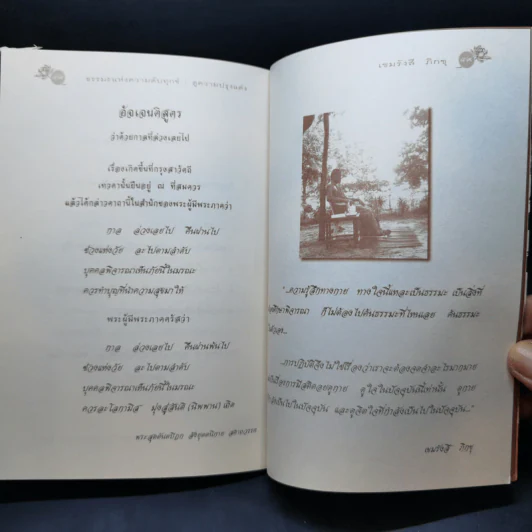 ธรรมะแห่งความดับทุกข์ สู่ความปรุงแต่ง
อัจเจนติสูตร
ว่าด้วยกาลที่ล่วงเลยไป
เรื่องเกิดขึ้นที่กรุงสาวัตถี
เทวดานั้นยืนอยู่ ณ ที่สมควร
แล้วได้กล่าวคาถานี้ในสำนักของพระผู้มีพระภาคว่า
กาล ล่วงเลยไป คืนผ่านไป
ช่วงแห่งวัย ละไปตามลำดับ
บุคคลพิจารณาเห็นภัยนี้ในมรณะ
ควรทำบุญที่นำความสุขมาให้
พระผู้มีพระภาคตรัสว่า
กาล ล่วงเลยไป คืนผ่านพ้นไป
ช่วงแห่งวัย ละไปตามลำดับ
บุคคลพิจารณาเห็นภัยนี้ในมรณะ
ควรละโลกามิส มุ่งสู่สันติ (นิพพาน) เถิด
พระสุตตันตปิฎก สังยุตตนิกาย สคาถวรรค
เขมรังสี ภิกขุ
"...ความรู้สึกทางกาย ทางใจนี้แหละเป็นธรรมะ เป็นสิ่งที่
ศึกษาพิจารณา ก็ไม่ต้องไปค้นธรรมะที่ไหนเลย ค้นธรรมะ
...การปฏิบัติจึงไม่ใช่เรื่องว่าเราจะต้องจดจำอะไรมากมาย
เรื่องการมีสติคอยดูกาย ดูใจในปัจจุบันนี้เท่านั้น ดูกาย
ไปในปัจจุบัน และดูจิตใจที่กำลังเป็นไปในปัจจุบัน..."
เขมรังสี ภิกขุ